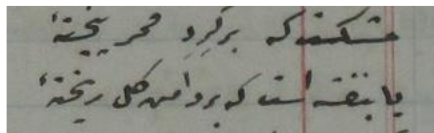 مشکست که بر گرد قمر بیخته‌ٔ
یا بنفشه است که بر دامن گل ریخته‌ٔ